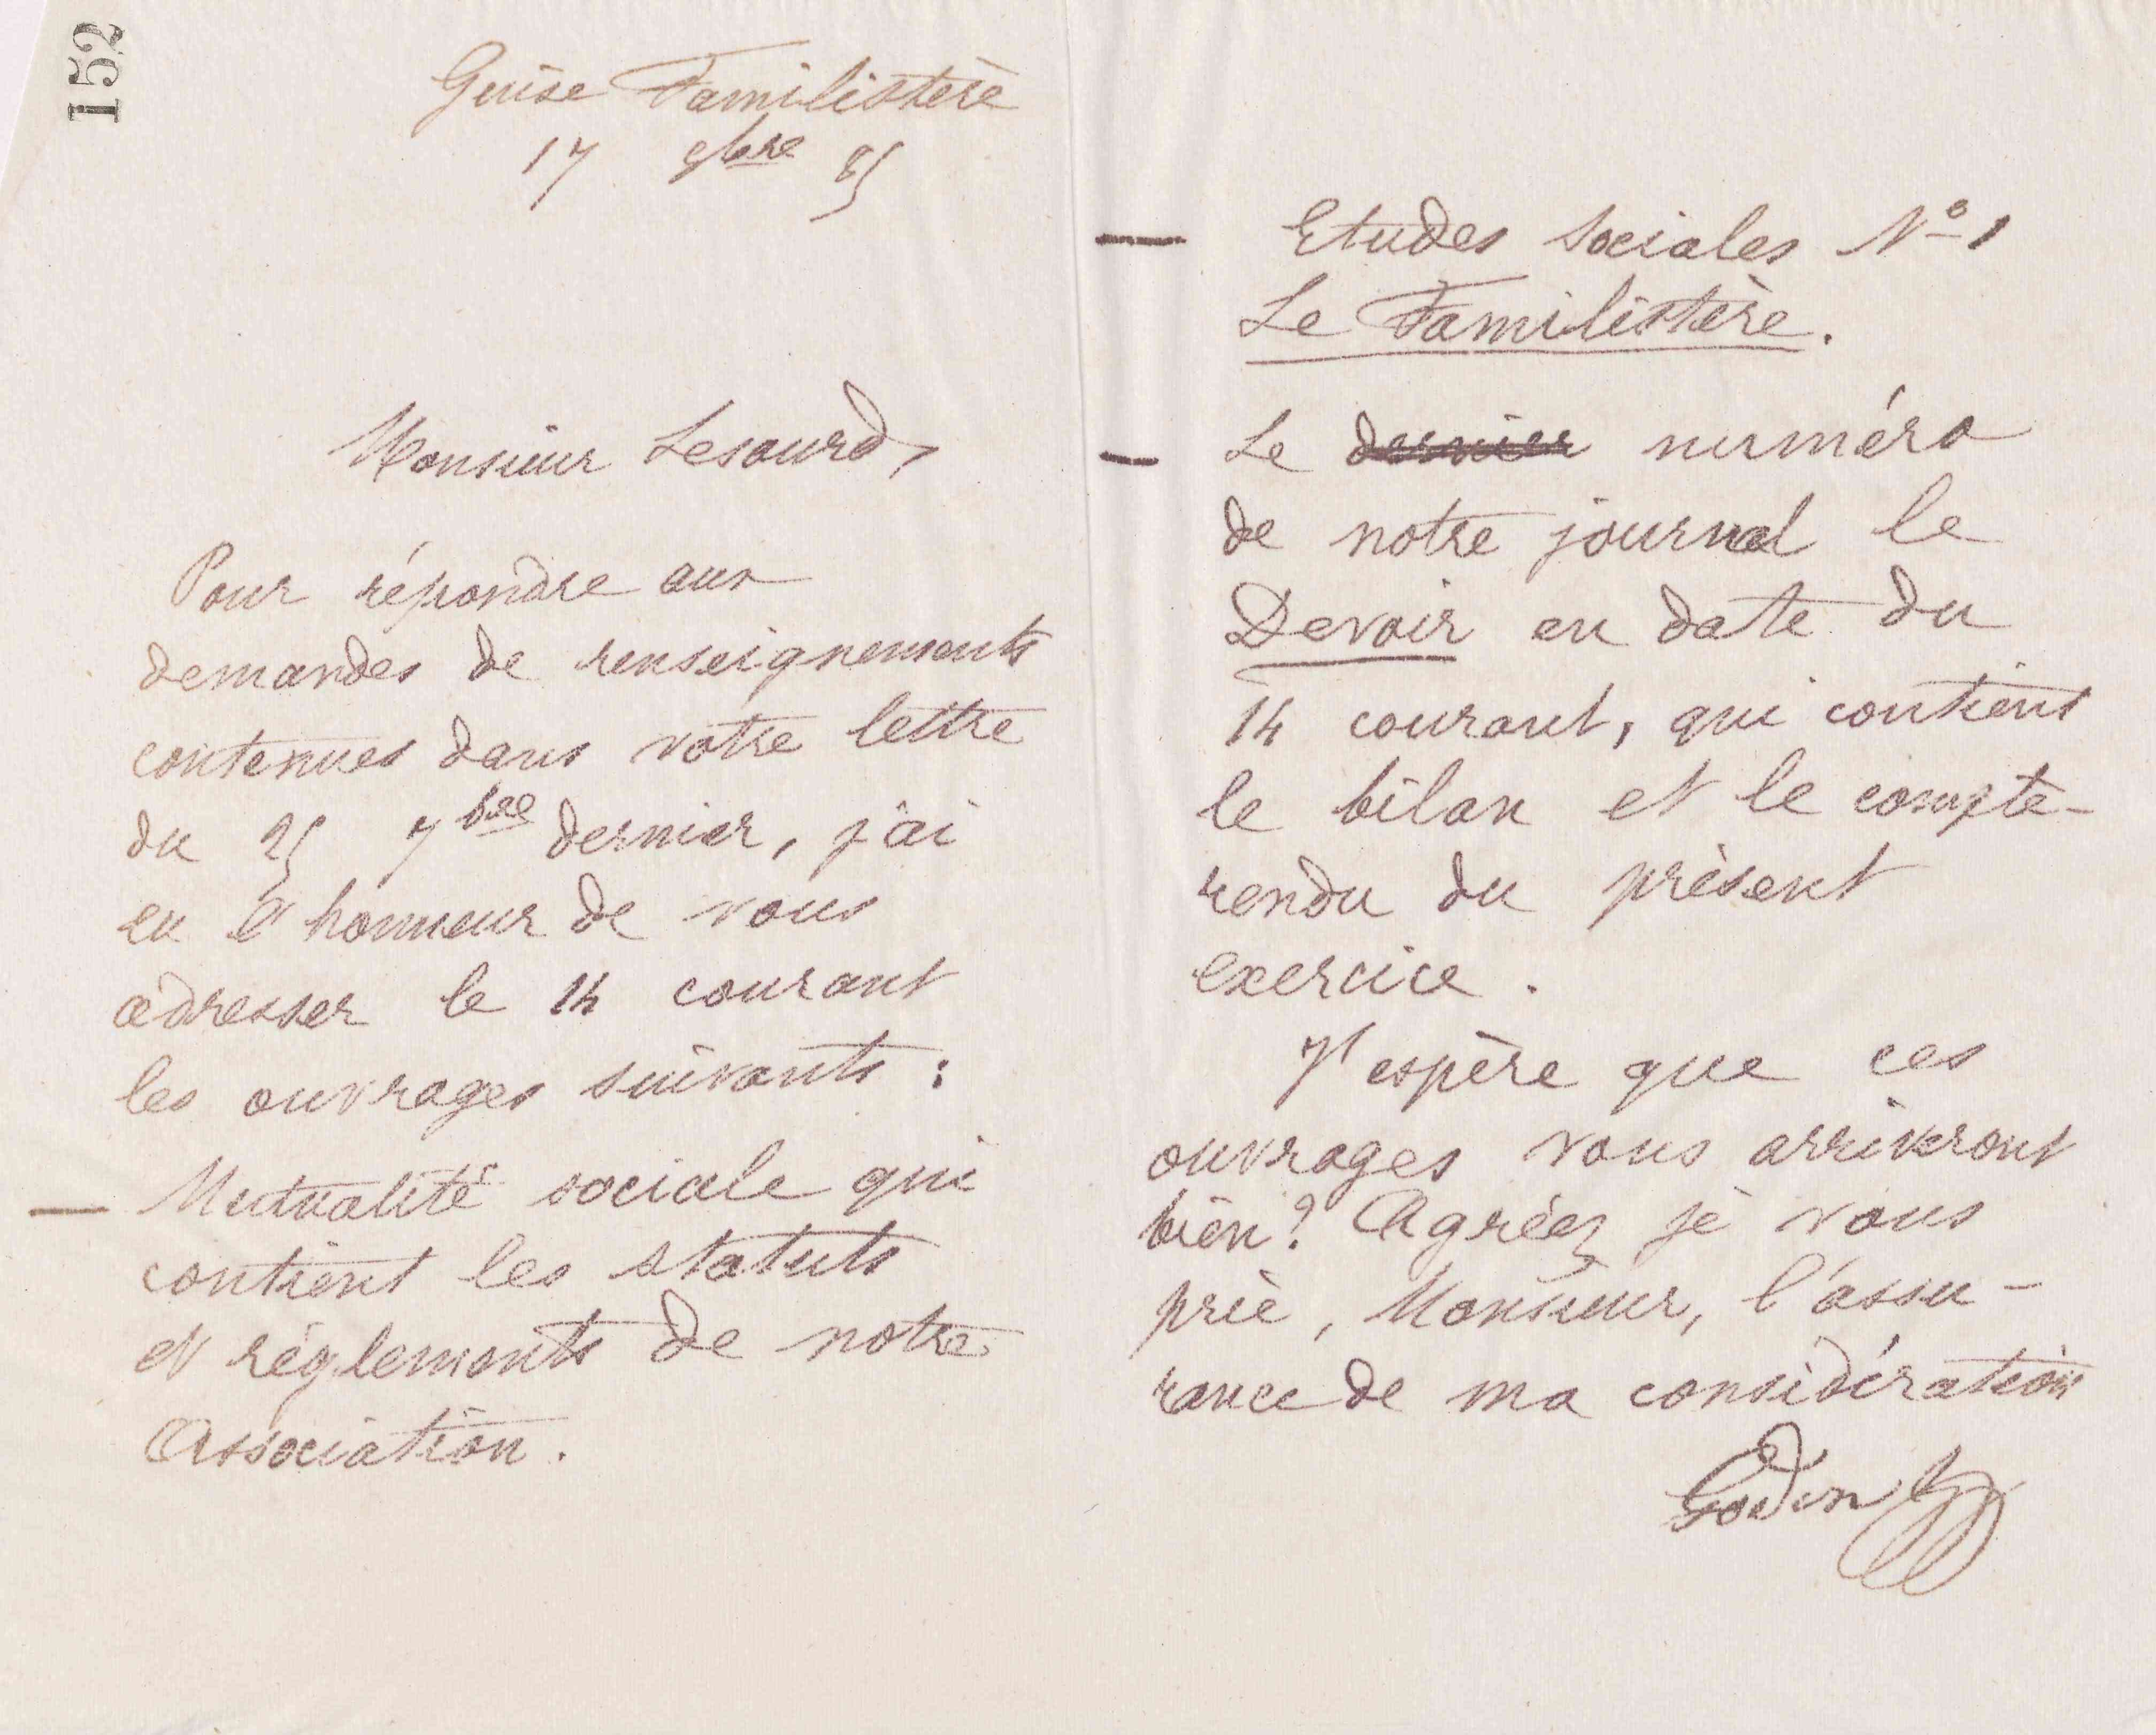 152
Guise Familistère
17 9bre 85
Monsieur Lesourd,
Pour répondre aux
demandes de renseignements
contenues dans votre lettre
du 25 7bre dernier, j'ai
eu l'honneur de vous
adresser le 14 courant
les ouvrages suivants :
— Mutualité sociale qui
contient les statuts
et règlements de notre
Association.
— Etudes sociales No 1
Le Familistère.
— Le dernier numéro
de notre journal le
Devoir en date du
14 courant, qui contient
le bilan et le compte-
rendu du présent
exercice.
J'espère que ces
ouvrages vous arriveront
bien? Agréez je vous
prie, Monsieur, l'assu-
rance de ma considération
Godin